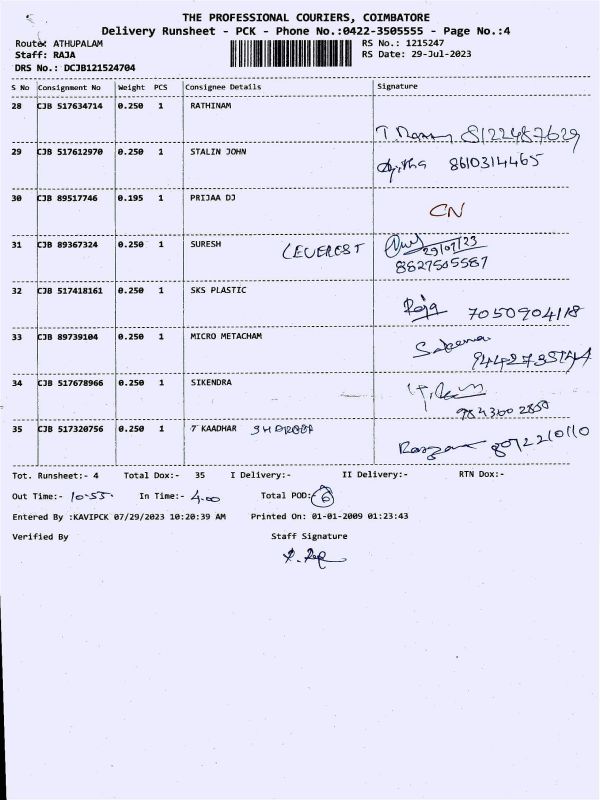 THE PROFESSIONAL COURIERS, COIMBATORE
Delivery Runsheet - PCK - Phone No.:0422-3505555 - Page No.:4
Route: ATHUPALAM RS No.: 1215247
Staff: RAJA RS Date: 29-Jul-2023
DRS No.: DCJB121524704
S No Consignment No Weight PCS Consignee Details Signature
28 CJB 517634714 0.250 1 RATHINAM
8122487629
29 CJB 517612970 0.250 1 STALIN JOHN 8610314465
30 CJB 89517746 0.195 1 PRIJAA DJ
CN
31 CJB 89367324 0.250 1 SURESH
29/07/23
8827505587
32 CJB 517418161 0.250 1 SKS PLASTIC
Raja 7050904118
33 CJB 89739104 0.250 1 MICRO METACHAM
34 CJB 517678966 0.250 1 SIKENDRA
984360 2850
35 CJB 517320756 0.250 1 T KAADHAR
Tot. Runsheet:- 4 Total Dox:- 35 I Delivery:- II Delivery:- RTN Dox:-
Out Time:- 10-55 In Time:- 4.00 Total POD:- 6
Entered By :KAVIPCK 07/29/2023 10:20:39 AM Printed On: 01-01-2009 01:23:43
Verified By Staff Signature